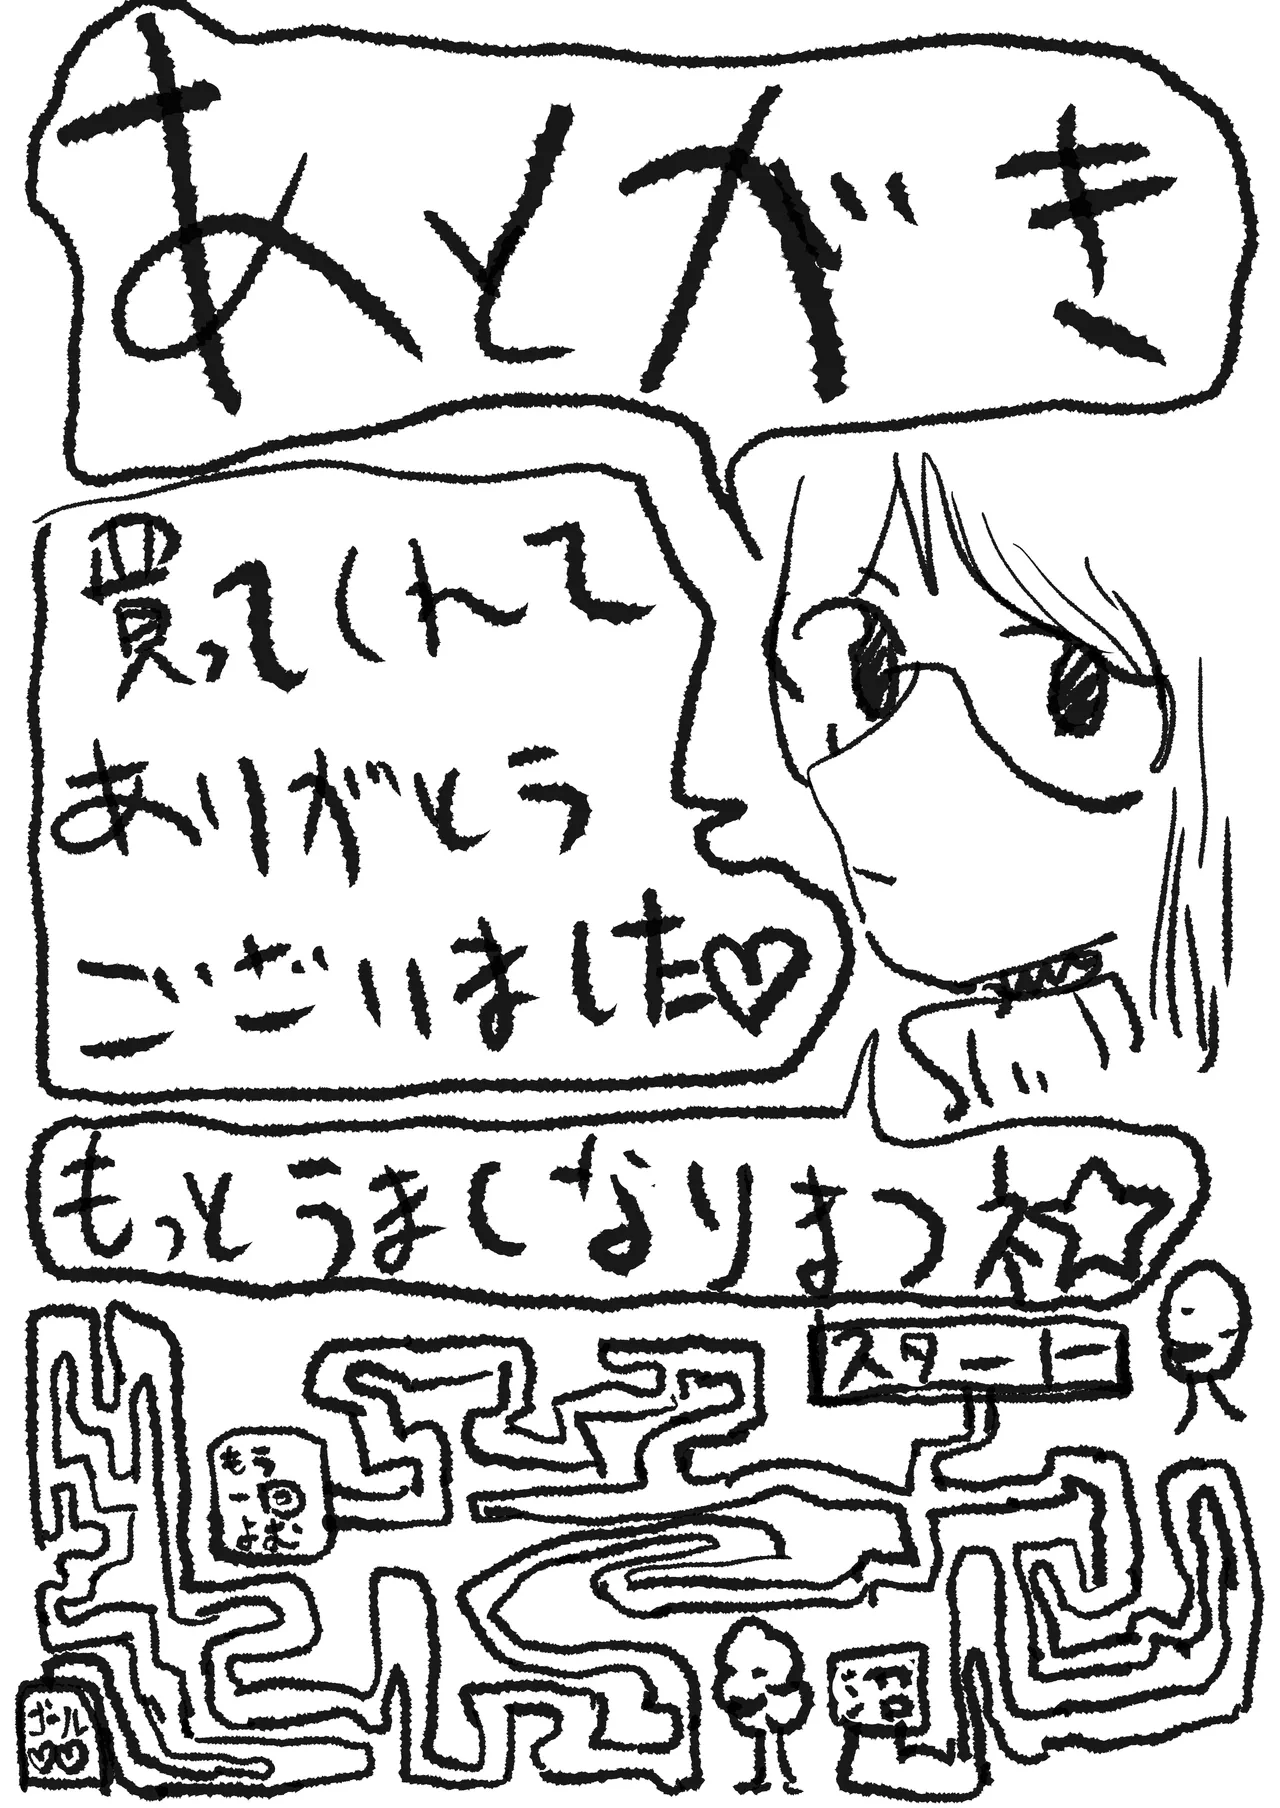 あとがき
買ってくれて
ありがとう
ございました♡
もっとうまくなりまつネ☆
スタート
もう
一回
よむ
ゴール
♡♡